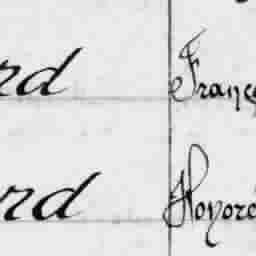 rd Franç
rd Honoré